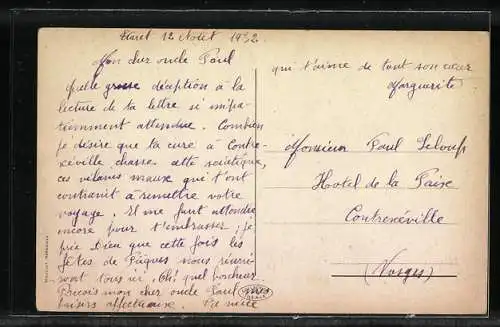 12 Août 1932
Mon cher oncle Paul
Quelle grosse déception à la
lecture de ta lettre si impa-
tiemment attendue. Combien
je désire que la cure à Contre-
xéville chasse cette sciatique,
ces vilains maux qui t'ont
contraint à remettre votre
voyage. Il me faut attendre
encore pour t'embrasser. Je
prie Dieu que cette fois les
fêtes de Pâques nous réuni-
ront tous ici. Oh! quel bonheur
Reçois mon cher oncle Paul mes
baisers affectueux. Ta nièce
qui t'aime de tout son cœur
Marguerite
Monsieur Paul Leloup
Hotel de la Paix
Contrexéville
(Vosges)